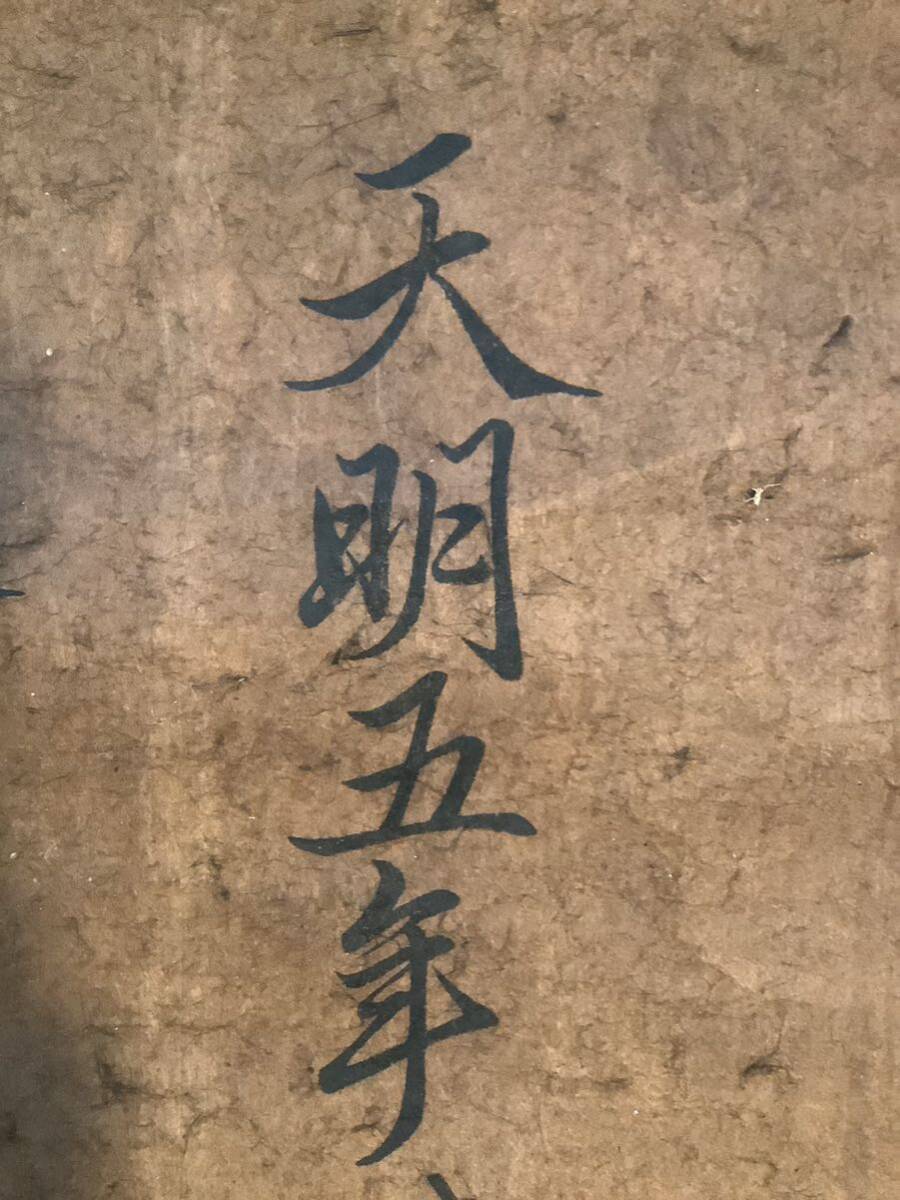 天明五年